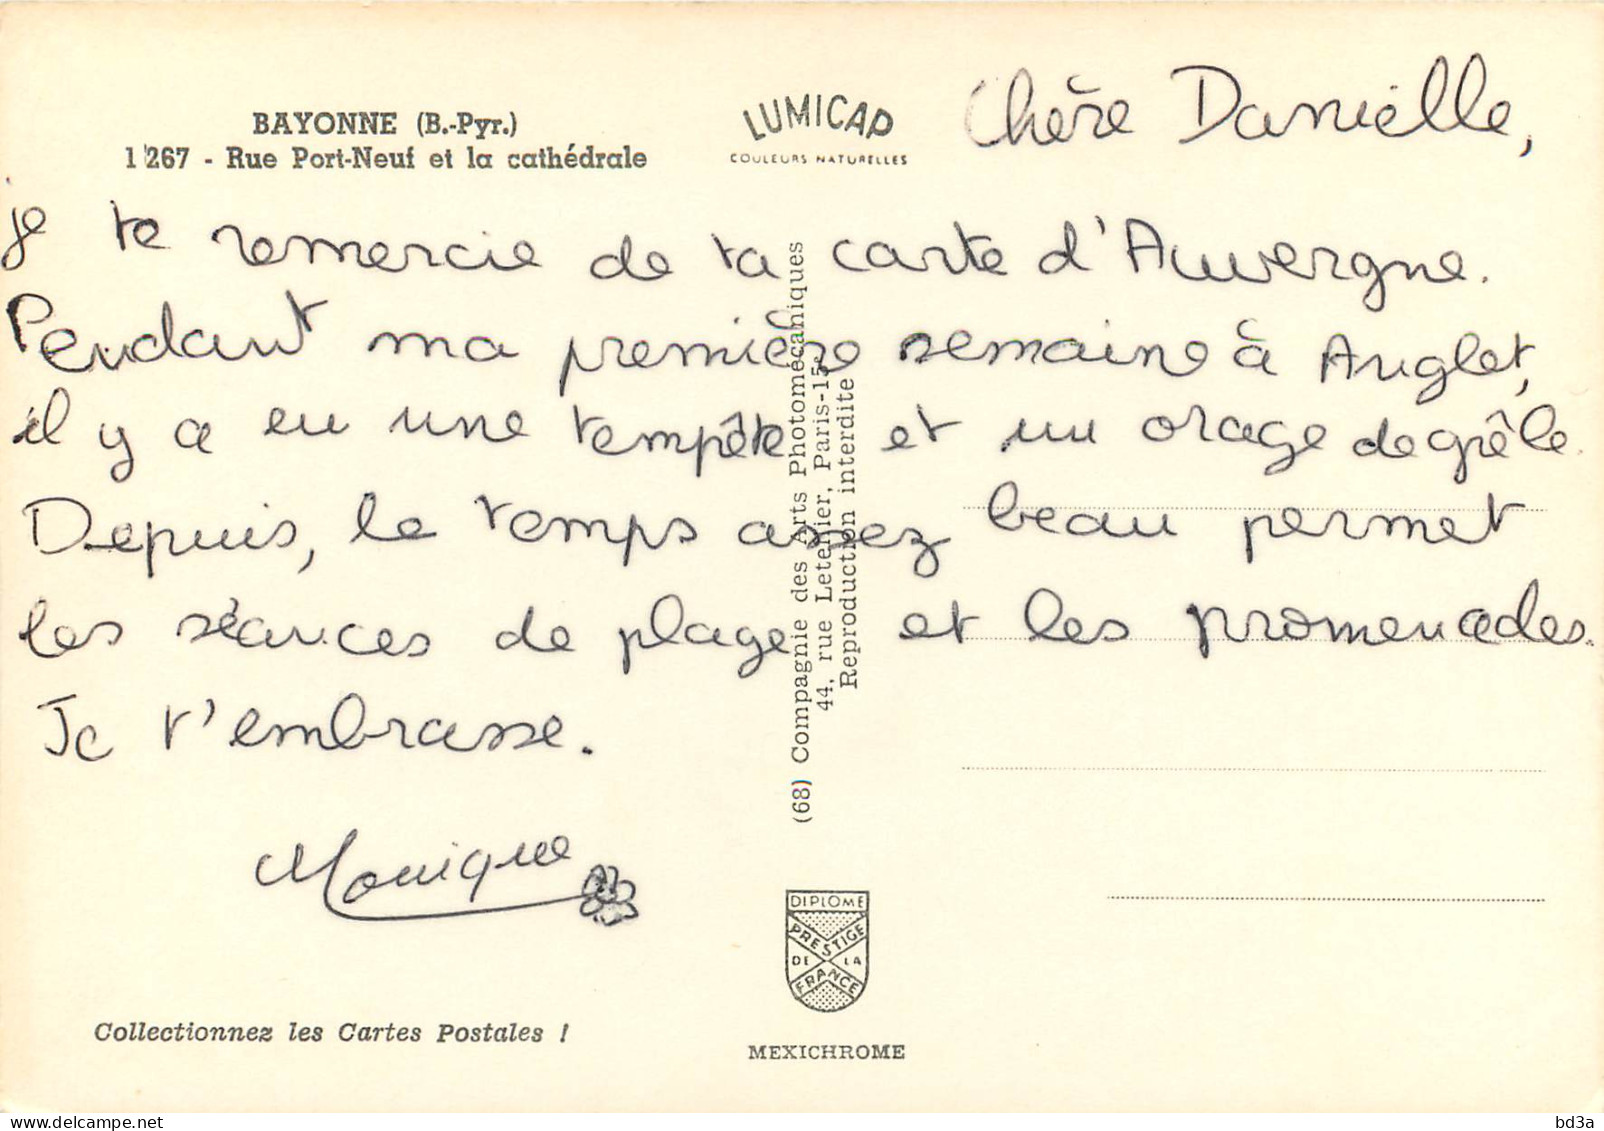 BAYONNE (B.-Pyr.)
1 267 - Rue Port-Neuf et la cathédrale
LUMICAP
COULEURS NATURELLES
Chère Danielle,
je te remercie de ta carte d'Auvergne.
Pendant ma première semaine à Anglet,
il y a eu une tempête et un orage de grêle.
Depuis, le temps assez beau permet
les séances de plage et les promenades.
Je t'embrasse.
Monique
(68) Compagnie des Arts Photomécaniques
44, rue Letellier, Paris-15
Reproduction interdite
DIPLOME
PRESTIGE
DE LA
FRANCE
MEXICHROME
Collectionnez les Cartes Postales !
delcampe.net
bd3a